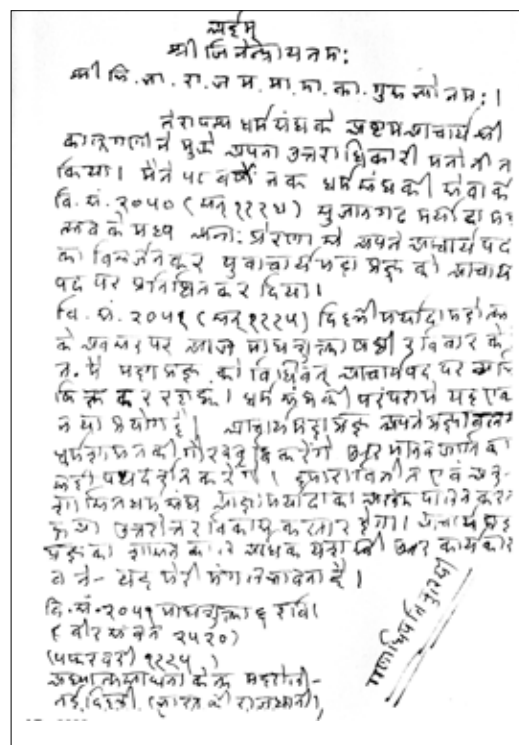 अर्हम्
श्री जिनेन्द्राय नमः
श्री भि. भा. रा. ज. म. मा. डा. का. गुरुभ्यो नमः।
तेरापन्थ धर्मसंघ के अष्टमाचार्य श्री
कालूगणी ने मुझे अपना उत्तराधिकारी मनोनीत
किया। मैंने वर्षों तक धर्मसंघ की सेवा की
वि. सं. २०५० (सन् १९९४) सुजानगढ मर्यादा महो-
त्सव के मध्य अन्तः प्रेरणा से अपने आचार्य पद
का विसर्जन कर युवाचार्य महाप्रज्ञ को आचार्य
पद पर प्रतिष्ठित कर दिया।
वि. सं. २०५१ (सन् १९९५) दिल्ली मर्यादा महोत्सव
के अवसर पर आज माघ शुक्ला षष्ठी रविवार के
मैं महाप्रज्ञ को विधिवत् आचार्य पद पर अभि-
षिक्त कर रहा हूं। धर्मसंघ की परंपरा में यह एक
नया प्रयोग है। आचार्य महाप्रज्ञ अपने प्रज्ञाबल से
धर्मशासन की गौरववृद्धि करेंगे और मानवजाति का
पथदर्शन करेंगे। हमारा विनीत एवं अनु-
शासित धर्मसंघ आज्ञा मर्यादा का पालन करता
हुआ उत्तरोत्तर विकास करता रहेगा। आचार्य महा-
प्रज्ञ का शासनकाल यशस्वी और कार्यकारी
बने- यह मेरी मंगलभावना है।
वि. सं. २०५१ माघ शुक्ला ६ रवि।
(वीर संवत् २५२०)
(५ फरवरी १९९५)
अध्यात्म साधना केन्द्र महरोली-
नई दिल्ली, (भारत की राजधानी)
गणाधिपति तुलसी